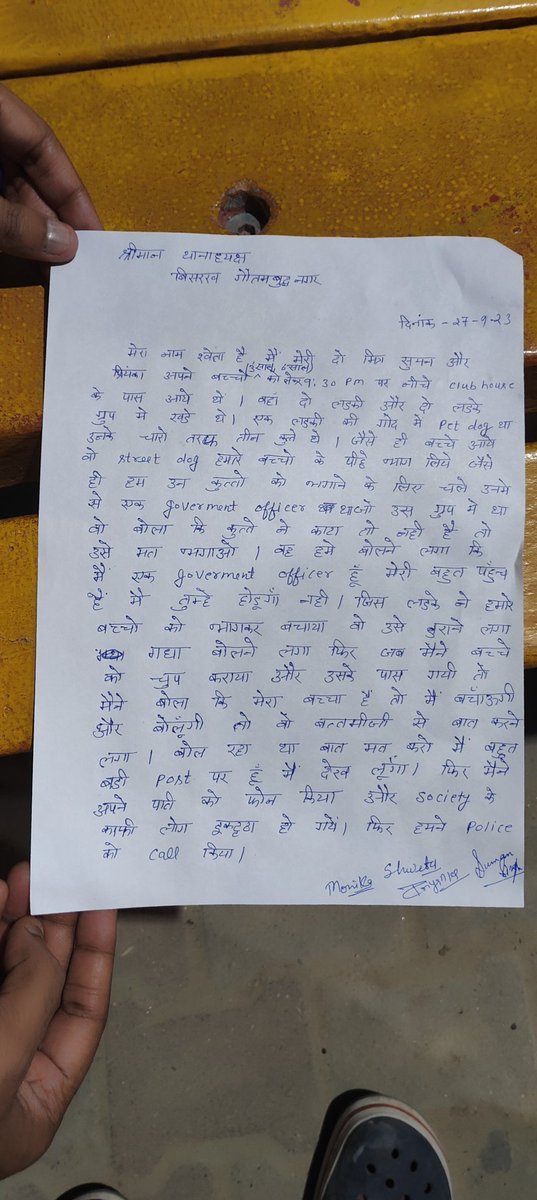 श्रीमान थानाध्यक्ष
बिसरख गौतमबुद्ध नगर
दिनांक - 27-9-23
मेरा नाम श्वेता है मैं मेरी दो मित्र सुमन और
प्रियंका अपने बच्चो (3 साल, 6 साल) को लेकर 9:30 pm पर नीचे club house
के पास आये थे। वहां दो लडकी और दो लडके
ग्रुप मे खडे थे। एक लडकी की गोद मे Pet dog था
उनके चारो तरफ तीन कुत्ते थे। जैसे ही बच्चे आये
वो street dog हमारे बच्चो के पीछे भाग लिये जैसे
ही हम उन कुत्तो को भगाने के लिए चले उनमे
से एक goverment officer था जो उस ग्रुप मे था
वो बोला कि कुत्ते ने काटा तो नही है तो
उसे मत भगाओ। वह हमे बोलने लगा कि
मैं एक goverment officer हूँ मेरी बहुत पहुंच
हैं मै तुम्हे छोडूगाँ नही। जिस लडके ने हमारे
बच्चो को भागकर बचाया वो उसे डराने लगा
गधा बोलने लगा फिर जब मैने बच्चे
को चुप कराया और उसके पास गयी तो
मैने बोला कि मेरा बच्चा है तो मैं बचाँऊगी
और बोलूँगी तो वो बत्तमीजी से बात करने
लगा। बोल रहा था बात मत करो मैं बहुत
बडी Post पर हूँ मैं देख लूँगा। फिर मैने
अपने पति को फोन किया और society के
काफी लोग इकट्ठा हो गये। फिर हमने Police
को call किया।
Monika Shweta Priyanka Suman